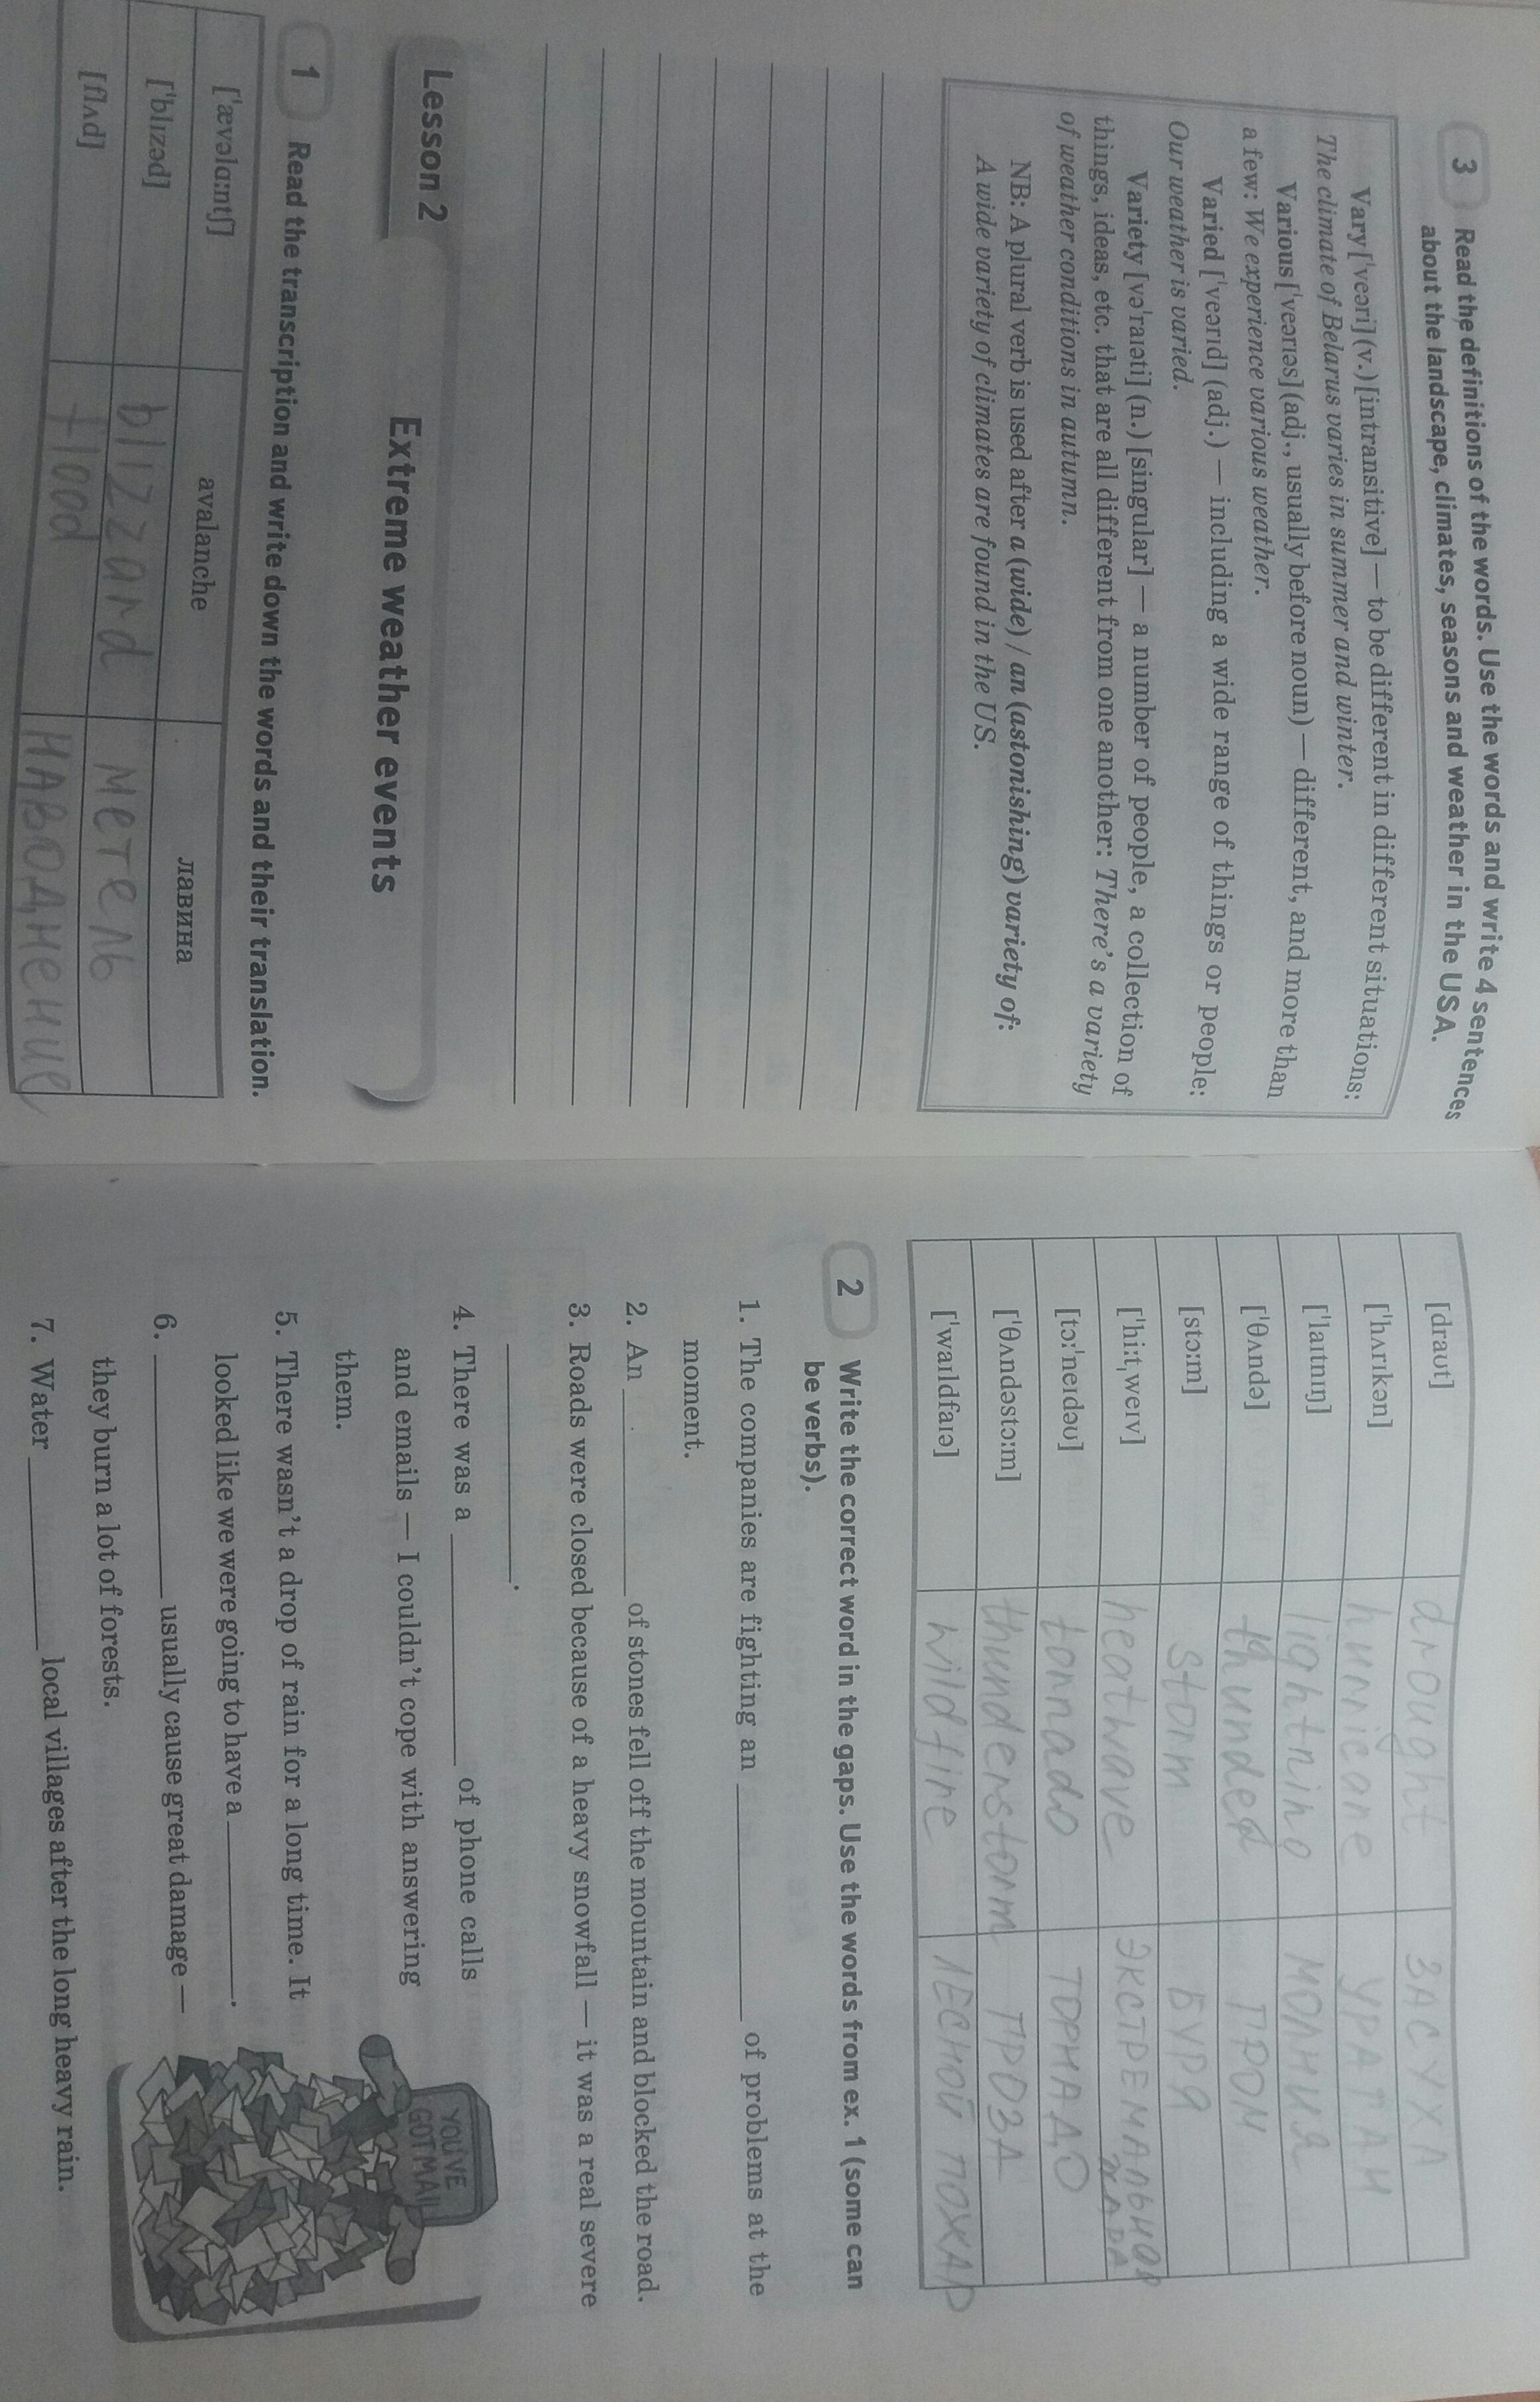 3 Read the definitions of the words. Use the words and write 4 sentences
about the landscape, climates, seasons and weather in the USA.
Vary [ˈveəri] (v.) [intransitive] — to be different in different situations:
The climate of Belarus varies in summer and winter.
Various [ˈveərɪəs] (adj., usually before noun) — different, and more than
a few: We experience various weather.
Varied [ˈveərɪd] (adj.) — including a wide range of things or people:
Our weather is varied.
Variety [vəˈraɪəti] (n.) [singular] — a number of people, a collection of
things, ideas, etc. that are all different from one another: There's a variety
of weather conditions in autumn.
NB: A plural verb is used after a (wide) / an (astonishing) variety of:
A wide variety of climates are found in the US.
Lesson 2
Extreme weather events
1 Read the transcription and write down the words and their translation.
[ˈævəlɑːntʃ] avalanche лавина
[ˈblɪzəd] blizzard метель
[flʌd] flood НАВОДНЕНИЕ
[draʊt] drought ЗАСУХА
[ˈhʌrɪkən] hurricane УРАГАН
[ˈlaɪtnɪŋ] lightning МОЛНИЯ
[ˈθʌndə] thunder ГРОМ
[stɔːm] storm БУРЯ
[ˈhiːtˌweɪv] heatwave ЭКСТРЕМАЛЬНАЯ
ЖАРА
[tɔːˈneɪdəʊ] tornado ТОРНАДО
[ˈθʌndəstɔːm] thunderstorm ГРОЗА
[ˈwaɪldfaɪə] wildfire ЛЕСНОЙ ПОЖАР
2 Write the correct word in the gaps. Use the words from ex. 1 (some can
be verbs).
1. The companies are fighting an ____ of problems at the
moment.
2. An ____ of stones fell off the mountain and blocked the road.
3. Roads were closed because of a heavy snowfall — it was a real severe
____.
4. There was a ____ of phone calls
and emails — I couldn't cope with answering
them.
5. There wasn't a drop of rain for a long time. It
looked like we were going to have a ____.
6. ____ usually cause great damage —
they burn a lot of forests.
7. Water ____ local villages after the long heavy rain.
YOU'VE
GOT MAIL